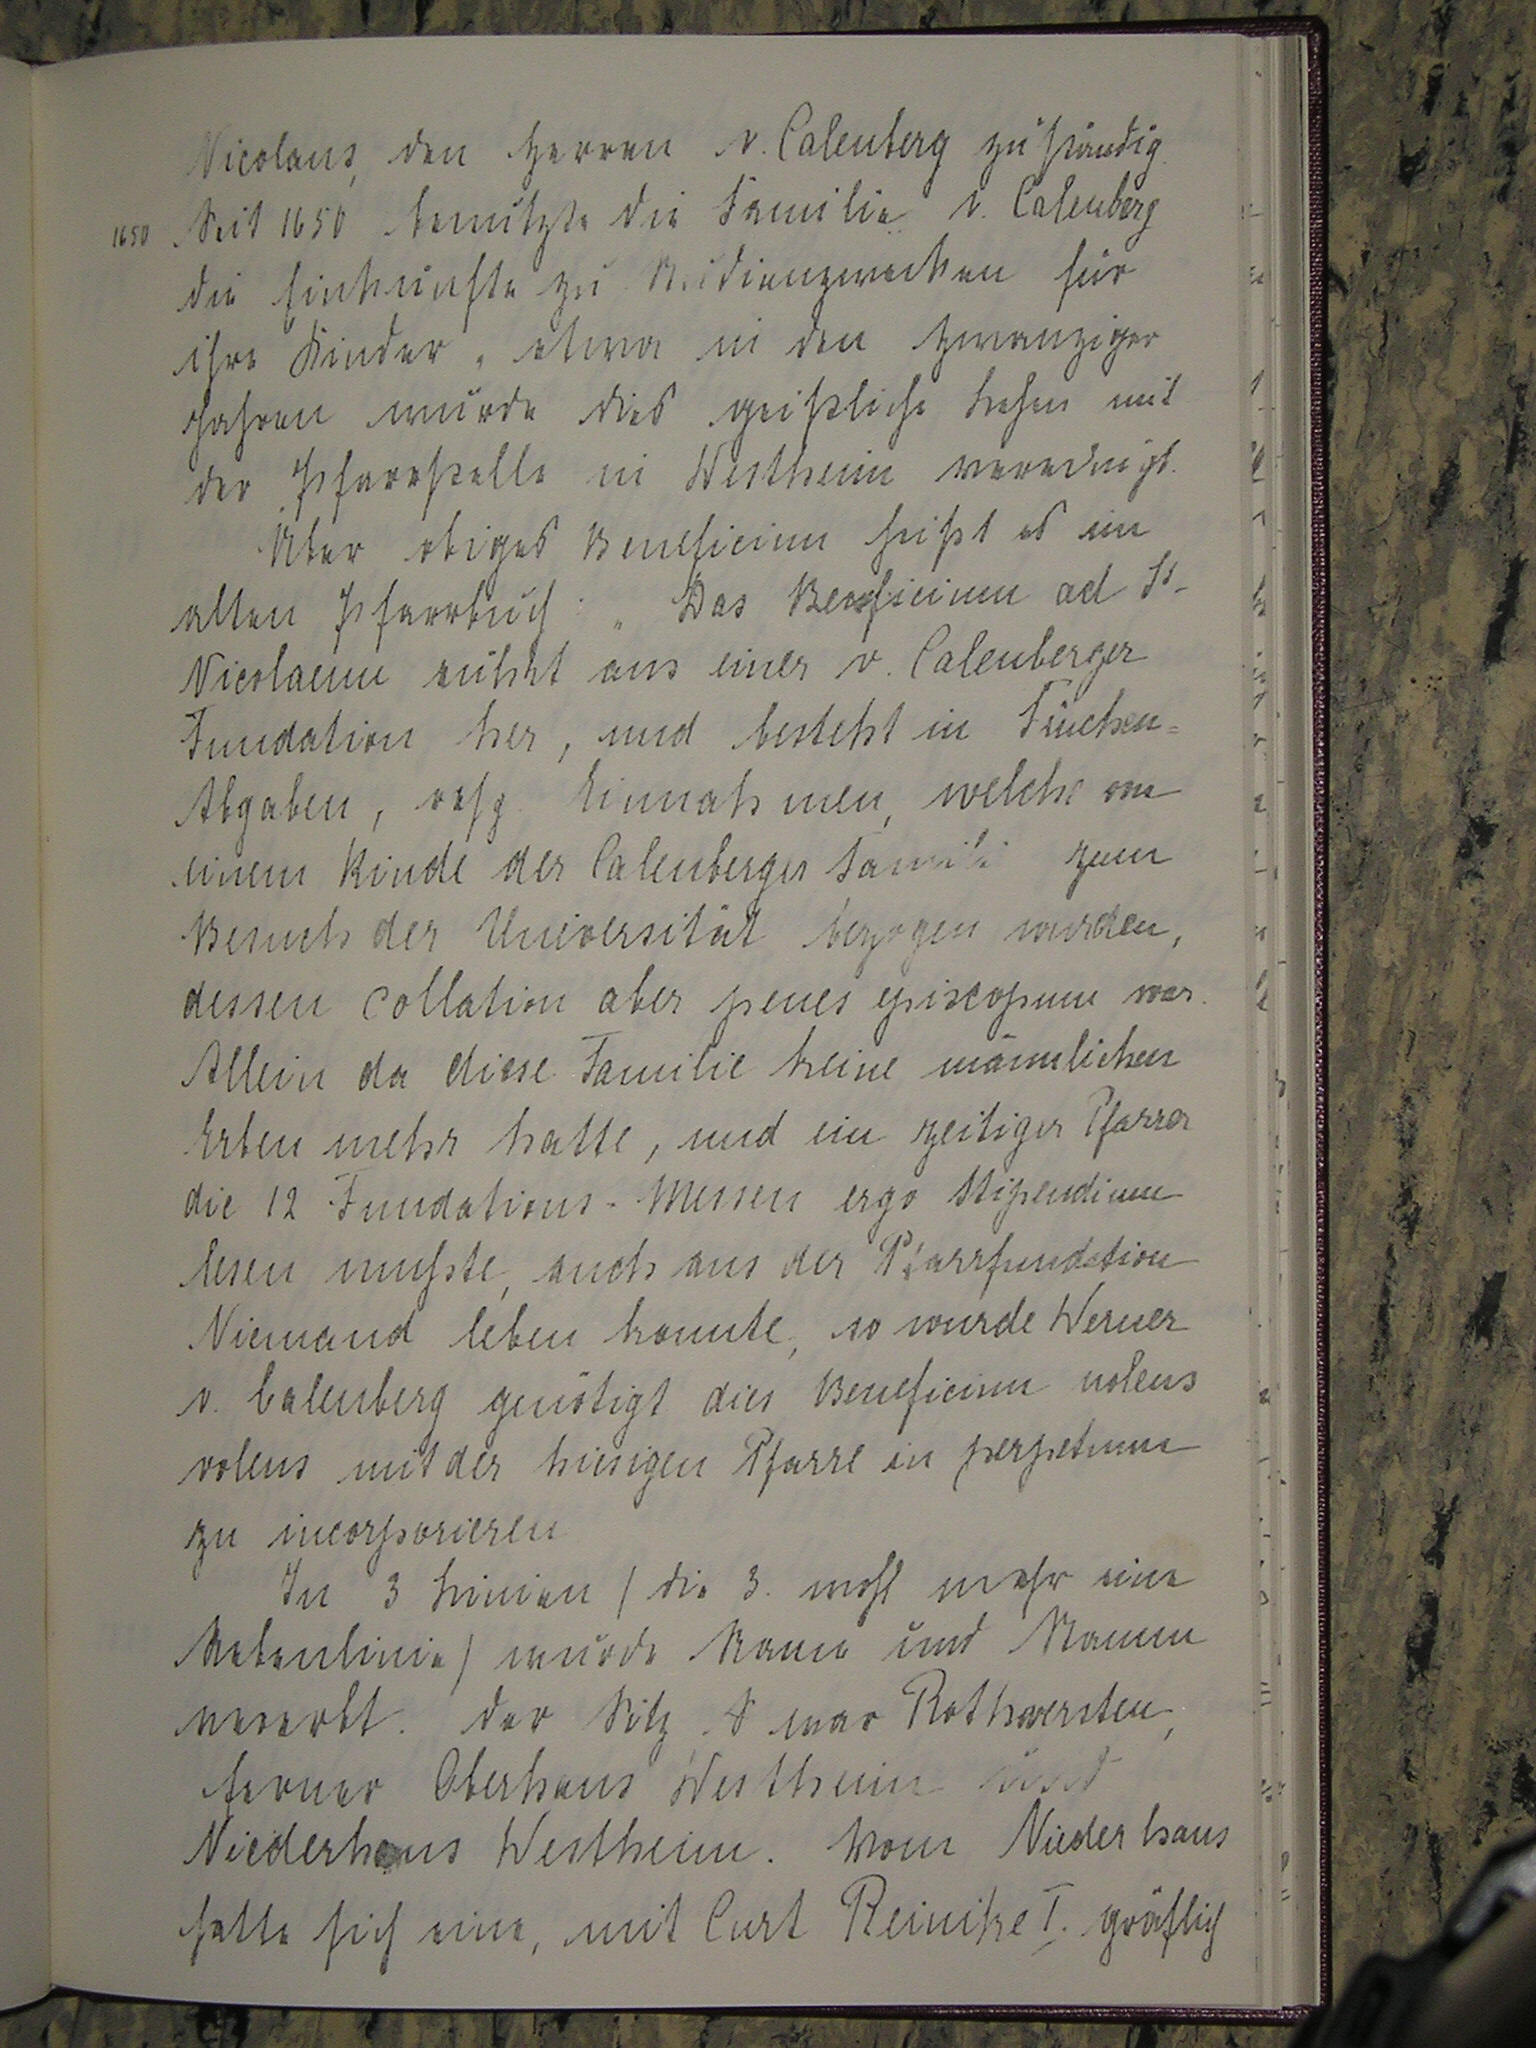 Nicolaus, den Herren v. Calenberg zuständig.
1650 Seit 1650 benutzte die Familie v. Calenberg
die Einkünfte zu Studienzwecken für
ihre Kinder, etwa in den zwanziger
Jahren wurde dies geistliche Lehen mit
der Pfarrstelle in Westheim vereinigt.
Über obiges Beneficium heißt es im
alten Pfarrbuch: „Das Beneficium ad St.
Nicolaum rührt aus einer v. Calenberger
Fundation her, und besteht in
Abgaben, resp. Einnahmen, welche von
einem Kinde der Calenberger Famili zum
Besuch der Universität bezogen wurden,
dessen Collation aber penes episcopum war.
Allein da diese Familie keine männlichen
Erben mehr hatte, und ein zeitiger Pfarrer
die 12 Fundations-Messen ergo Stipendium
lesen mußte, auch aus der Pfarrfundation
Niemand leben konnte, so wurde Werner
v. Calenberg genötigt dies Beneficium nolens
volens mit der hiesigen Pfarre in perpetuum
zu incorporieren
In 3 Linien (die 3. wohl mehr eine
Nebenlinie) wurde Name und Stamm
vererbt. Der Sitz war Rothwesten,
ferner Oberhaus Westheim und
Niederhaus Westheim. Vom Niederhaus
hatte sich eine, mit Curt Reinike I. gräflich